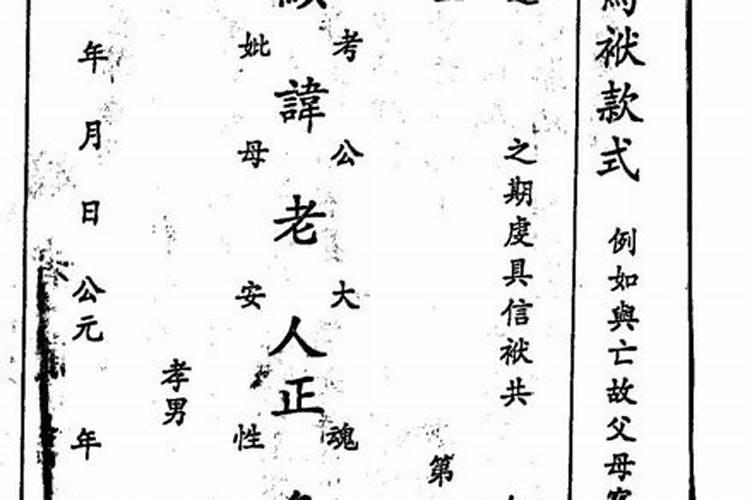 袱款式 例如與亡故父母
之期虔具信袱共
第
考 公 大 魂
諱老人正
妣 母 安 性
孝男
年 月 日 公元 年